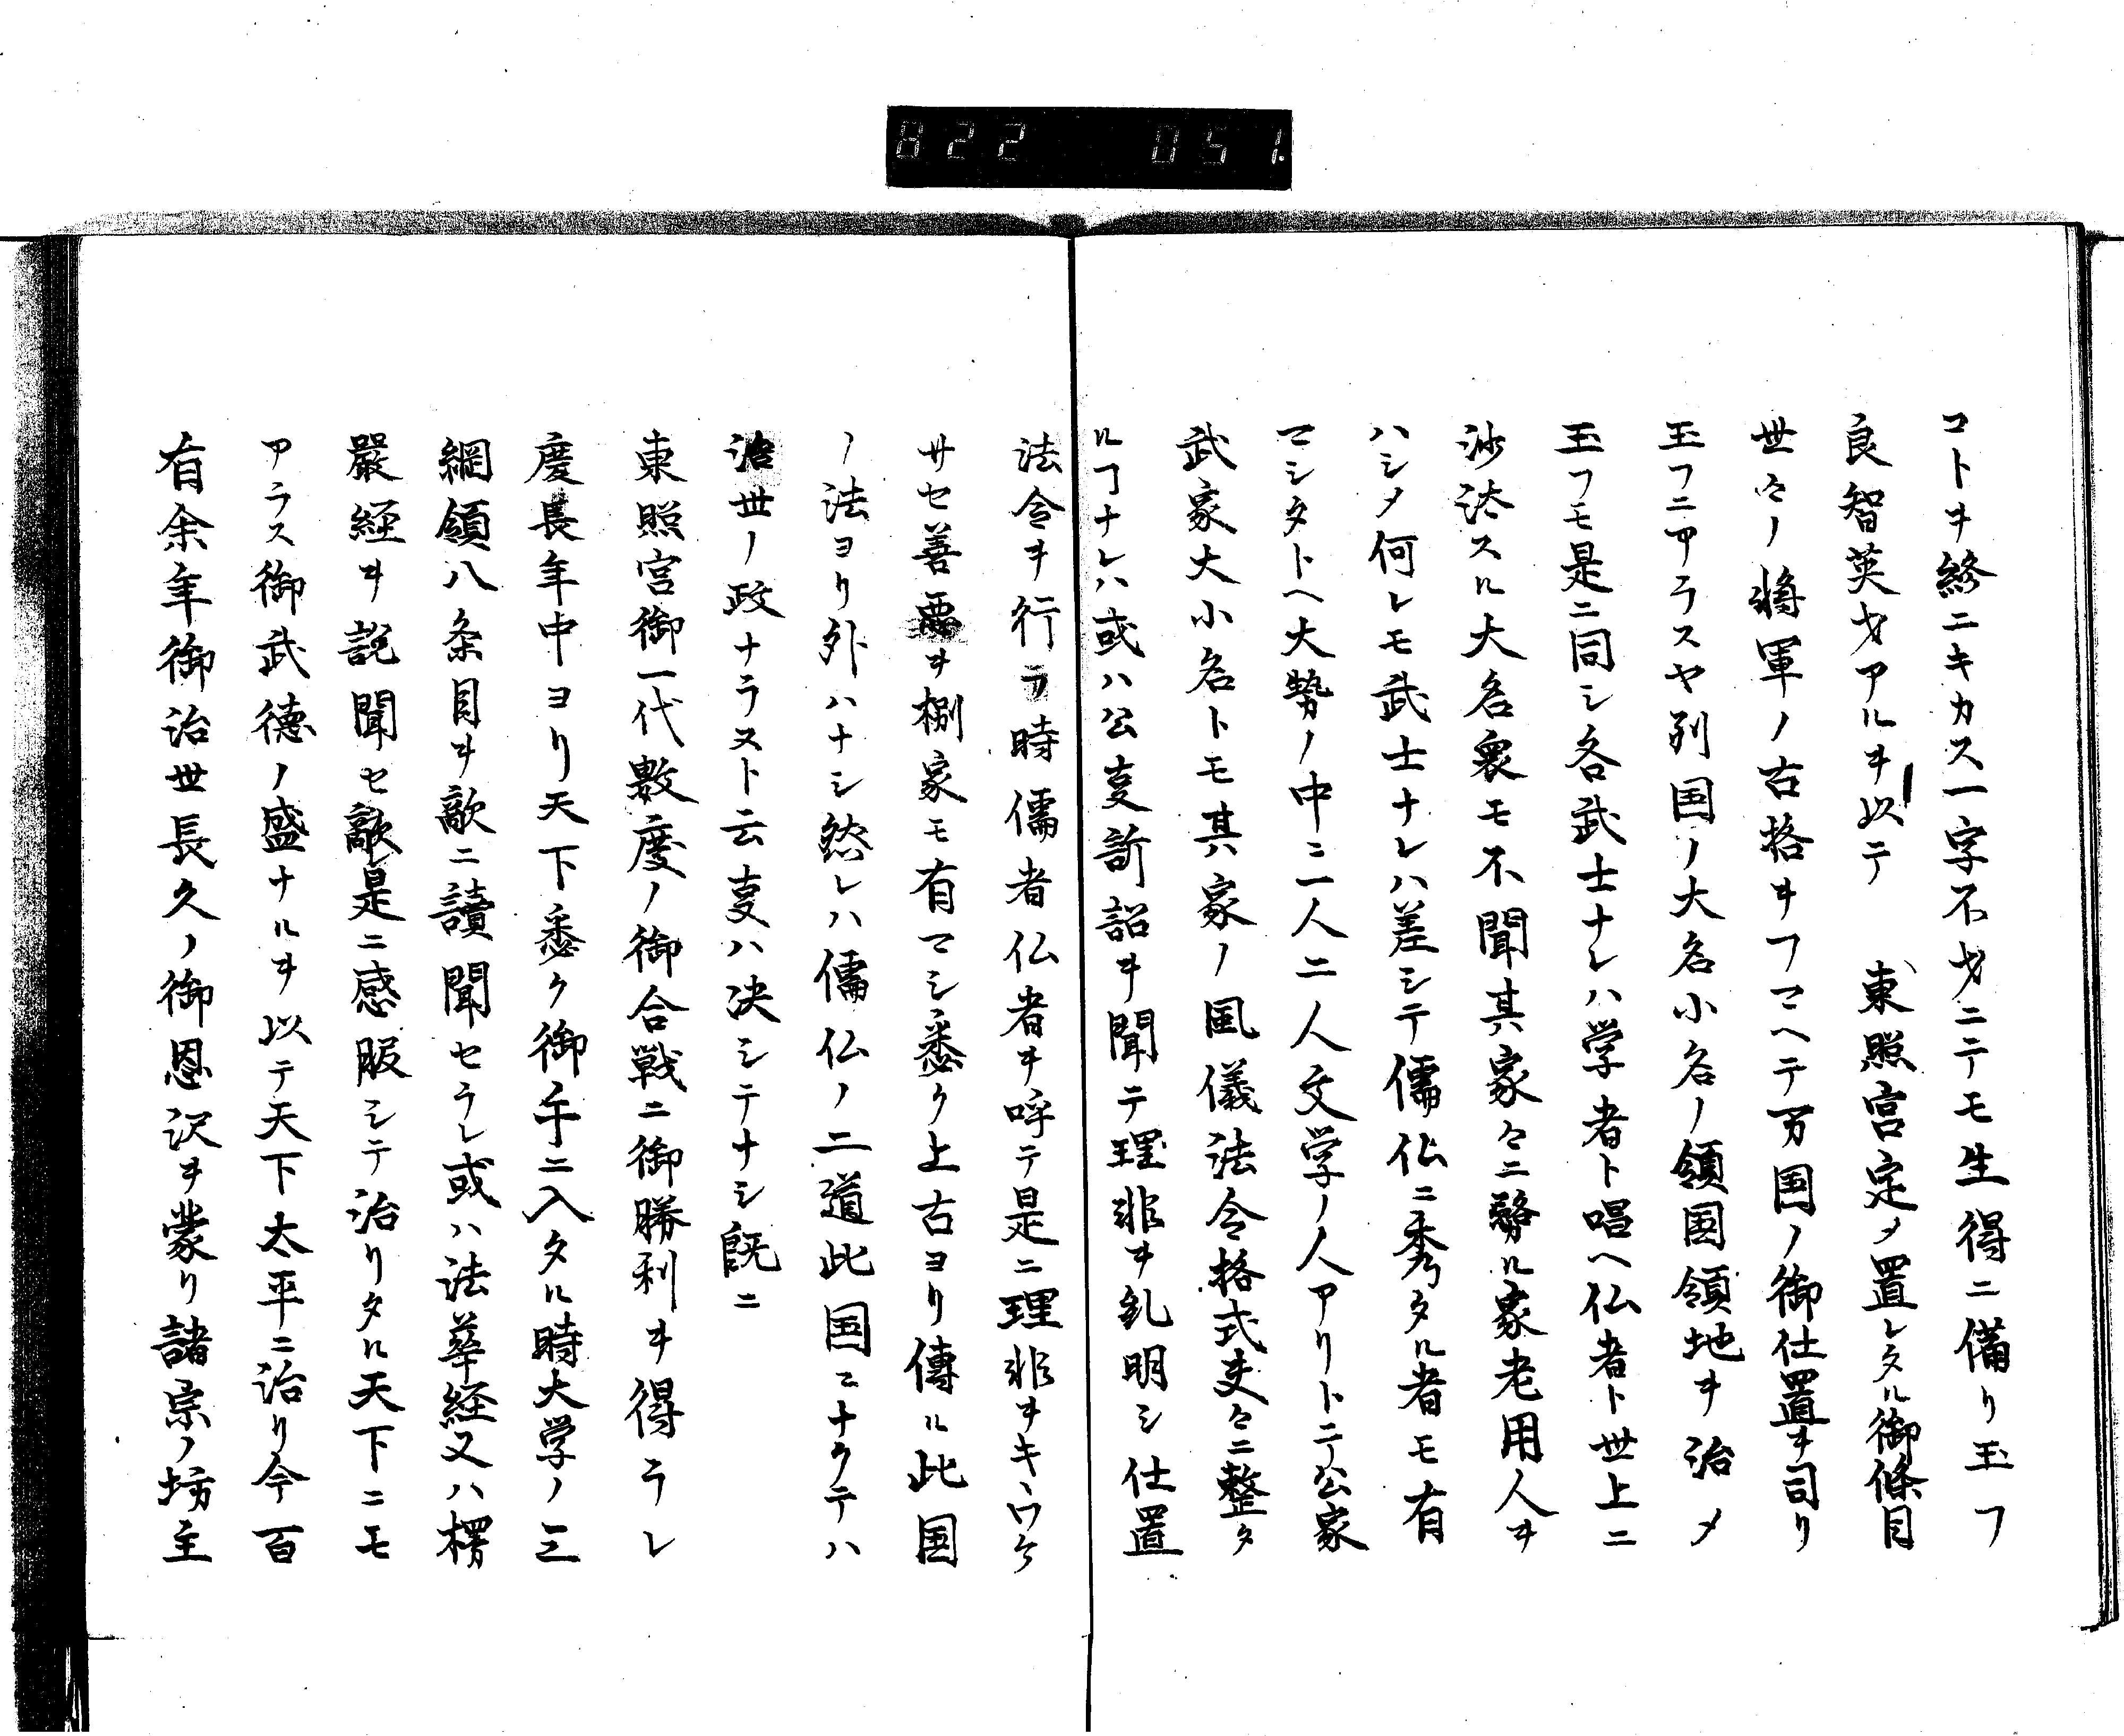 822 051
コトヲ終ニキカス一字不才ニテモ生得ニ備リ玉フ
良智英才アルヲ以テ 東照宮定メ置レタル御條目
世々ノ将軍ノ古格ヲフマヘテ万国ノ御仕置ヲ司リ
玉フニアラスヤ列国ノ大名小名ノ領国領地ヲ治メ
玉フモ是ニ同シ各武士ナレハ学者ト唱ヘ仏者ト世上ニ
沙汰スル大名衆モ不聞其家々ニ勤ル家老用人ヲ
ハシメ何レモ武士ナレハ差シテ儒仏ニ秀タル者モ有
マシタトヘ大勢ノ中ニ一人二人文学ノ人アリトニテ公家
武家大小名トモ其家ノ風儀法令格式夫々ニ整タ
ルヿナレハ或ハ公事訴詔ヲ聞テ理非ヲ糺明シ仕置
法令ヲ行ラ時儒者仏者ヲ呼テ是ニ理非ヲキヽワケ
サセ善悪ヲ捌家モ有マシ悉ク上古ヨリ傳ル此国
ノ法ヨリ外ハナシ然レハ儒仏ノ二道此国ニナクテハ
治世ノ政ナラスト云事ハ决シテナシ既ニ
東照宮御一代數度ノ御合戦ニ御勝利ヲ得ラレ
慶長年中ヨリ天下悉ク御手ニ入タル時大学ノ三
綱領八条目ヲ敵ニ讀聞セラレ或ハ法華経又ハ楞
嚴経ヲ説聞セ敵是ニ感服シテ治リタル天下ニモ
アラス御武徳ノ盛ナルヲ以テ天下太平ニ治リ今百
有余年御治世長久ノ御恩沢ヲ蒙リ諸宗ノ坊主